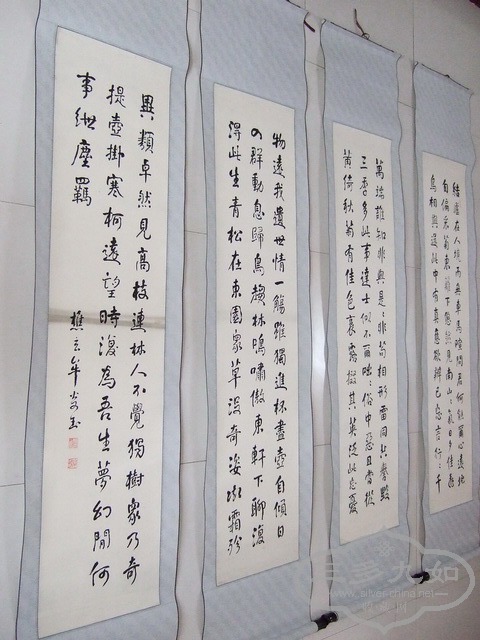 結廬在人境而無車馬喧問君何能爾心遠地
自偏采菊東籬下悠然見南山山氣日夕佳飛
鳥相與還此中有真意欲辨已忘言行〻千
萬端誰知非與是〻非苟相形雷同共譽毀
三季多此事達士似不爾咄〻俗中惡且當從
黃綺秋菊有佳色裛露掇其英汎此忘憂
物遠我遺世情一觴雖獨進杯盡壺自傾日
入群動息歸鳥趨林鳴嘯傲東軒下聊復
得此生青松在東園衆草沒奇姿凝霜殄
異類卓然見高枝連林人不覺獨樹衆乃奇
提壺掛寒柯遠望時復為吾生夢幻間何
事紲塵羈
九如